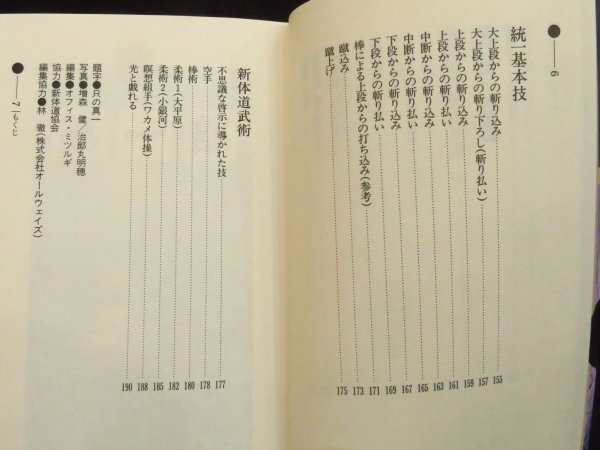 ●——6
統一基本技
大上段からの斬り込み……155
大上段からの斬り下ろし(斬り払い)……157
上段からの斬り込み……159
上段からの斬り払い……161
中断からの斬り込み……163
中断からの斬り払い……165
下段からの斬り込み……167
下段からの斬り払い……169
棒による上段からの打ち込み(参考)……171
蹴込み……173
蹴上げ……175
新体道武術
不思議な啓示に導かれた技……177
空手……178
棒術……180
柔術1(大平原)……182
柔術2(小銀河)……185
瞑想組手(ワカメ体操)……188
光と戯れる……190
題字●只の真一
写真●増森 健/治郎丸明穂
編集●オフィス・ミツルギ
協力●新体道協会
編集協力●林 徹(株式会社オールウェイズ)
●——7 もくじ